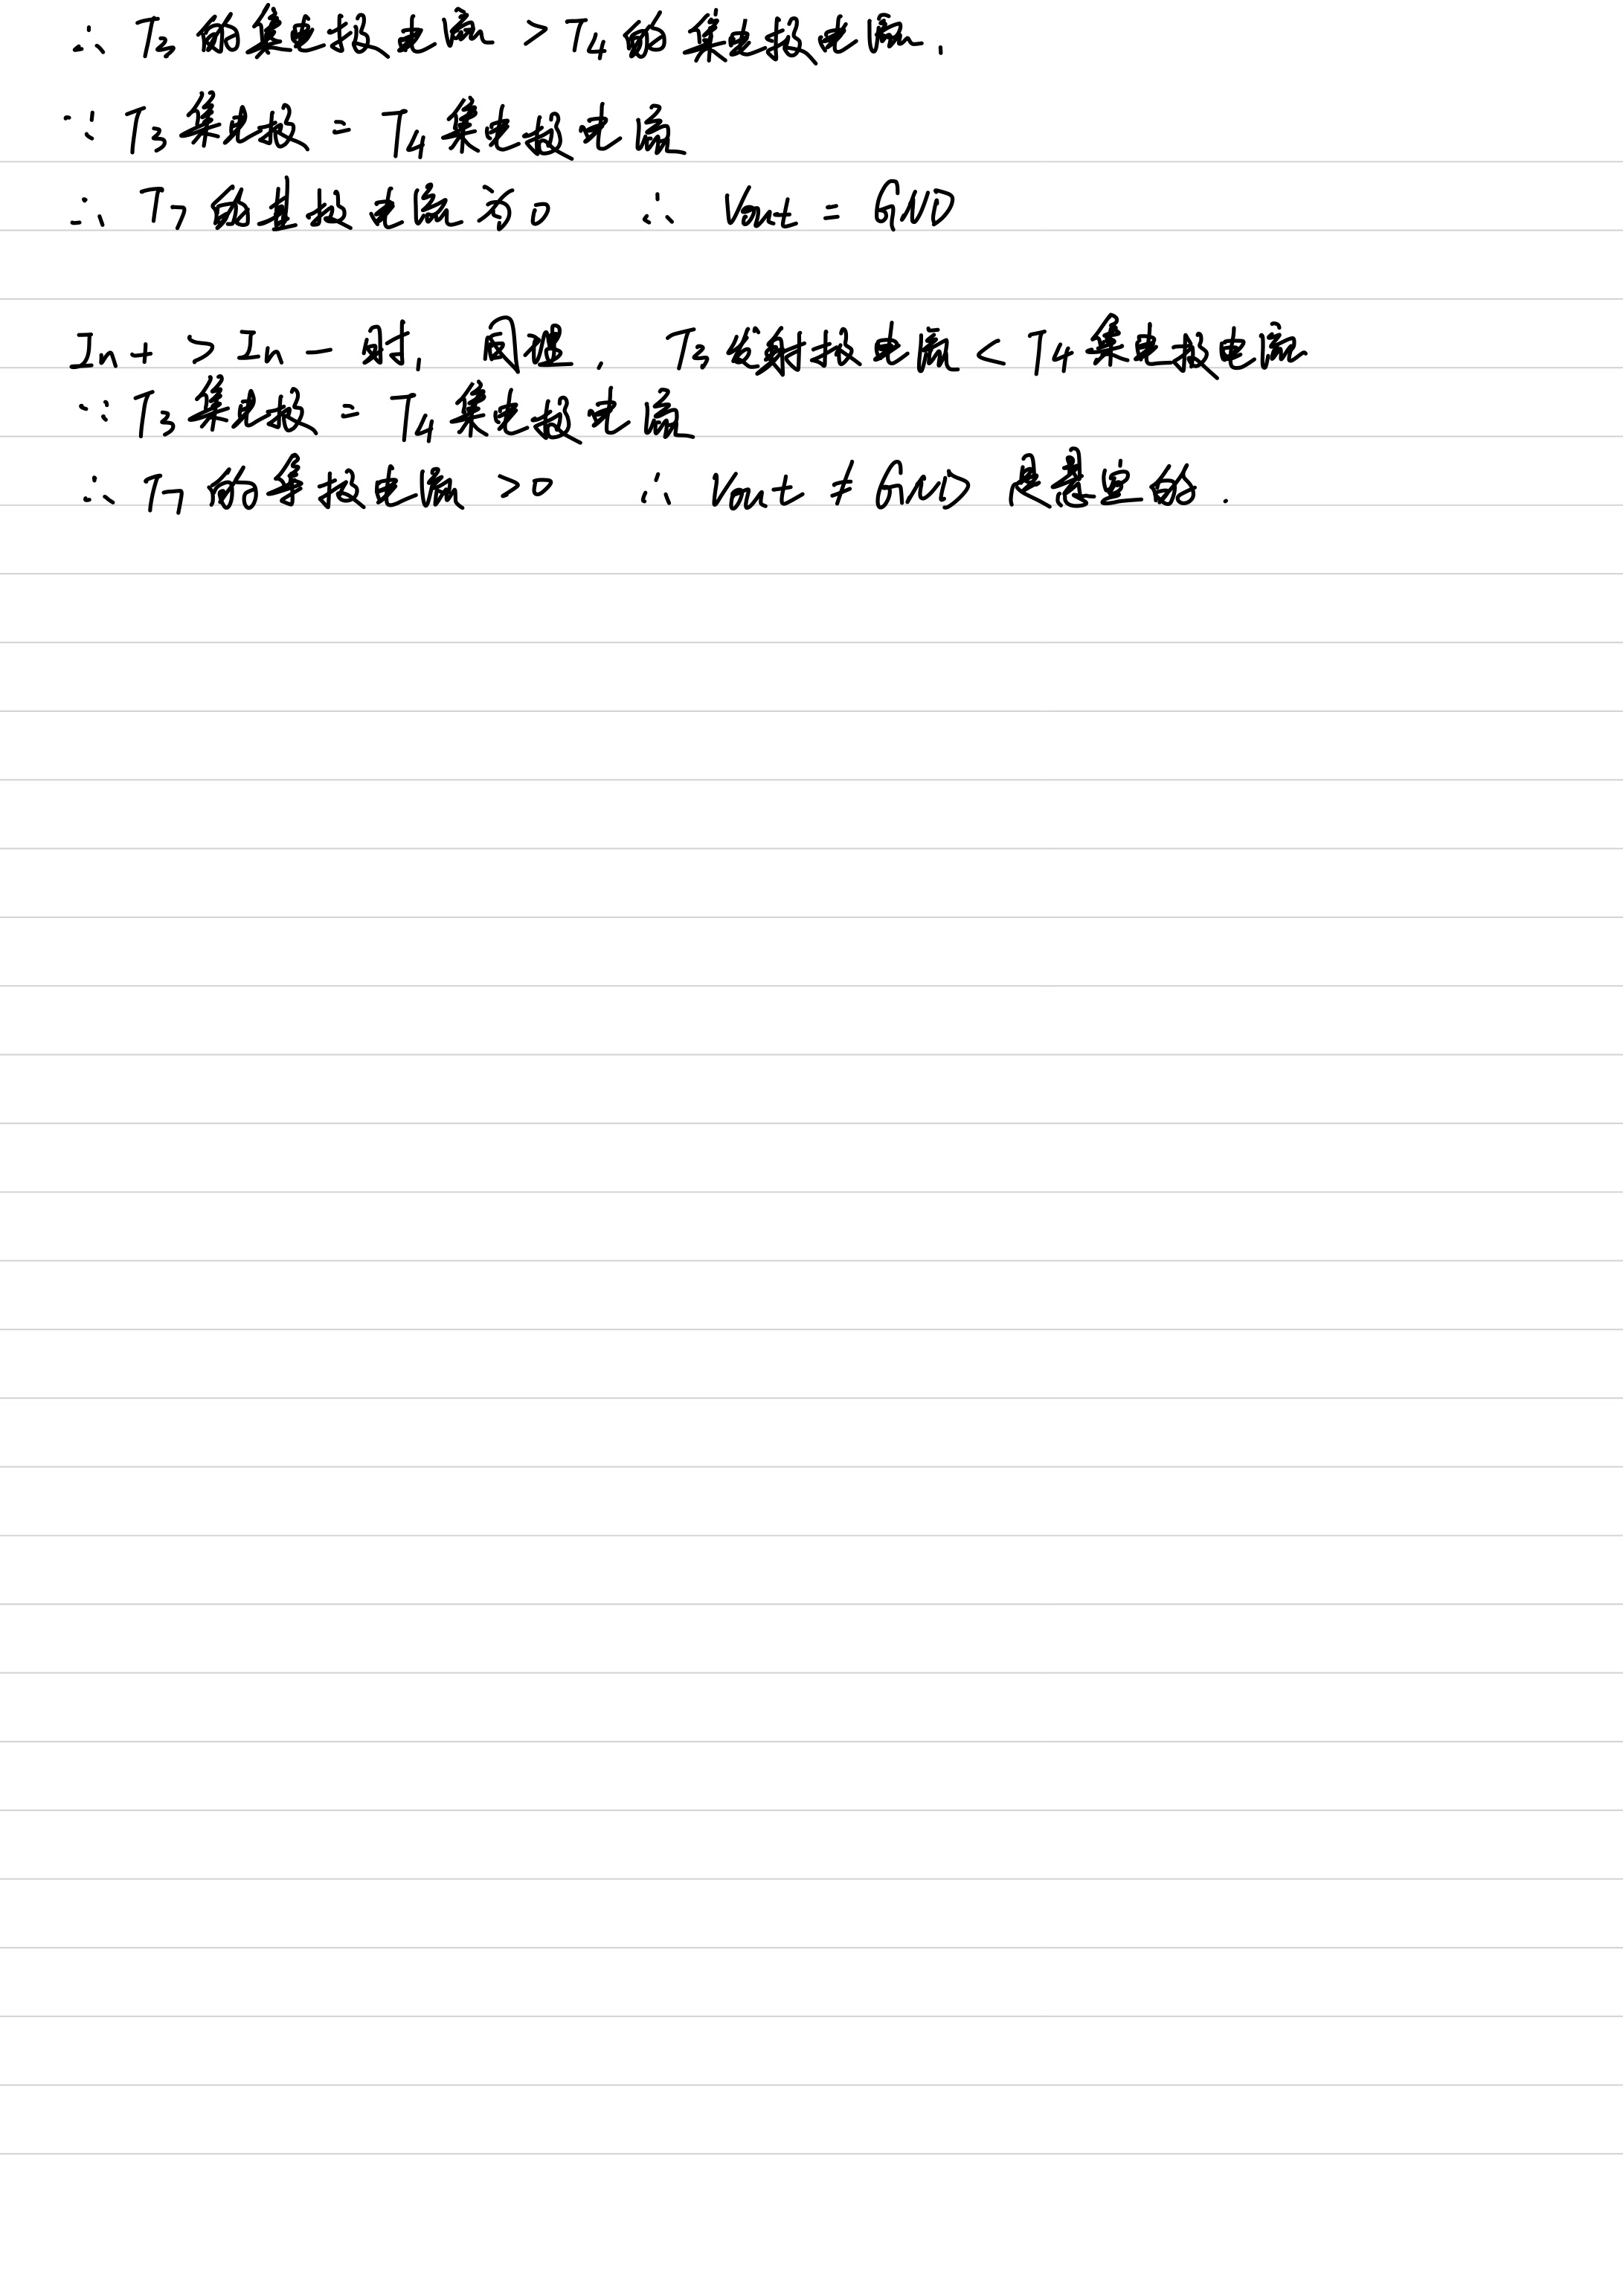 ∴ T3 的集电极电流 > T4 的集电极电流.
∵ T3 集电极 = T4 集电极电流
∴ T7 的基极电流为0 ∴ Vout = GND
In+ > In- 时, 同理, T3 发射极电流 < T4 集电极电流
∵ T3 集电极 = T4 集电极电流
∴ T7 的集极电流 >0 ∴ Vout ≠ GND 是悬空的.